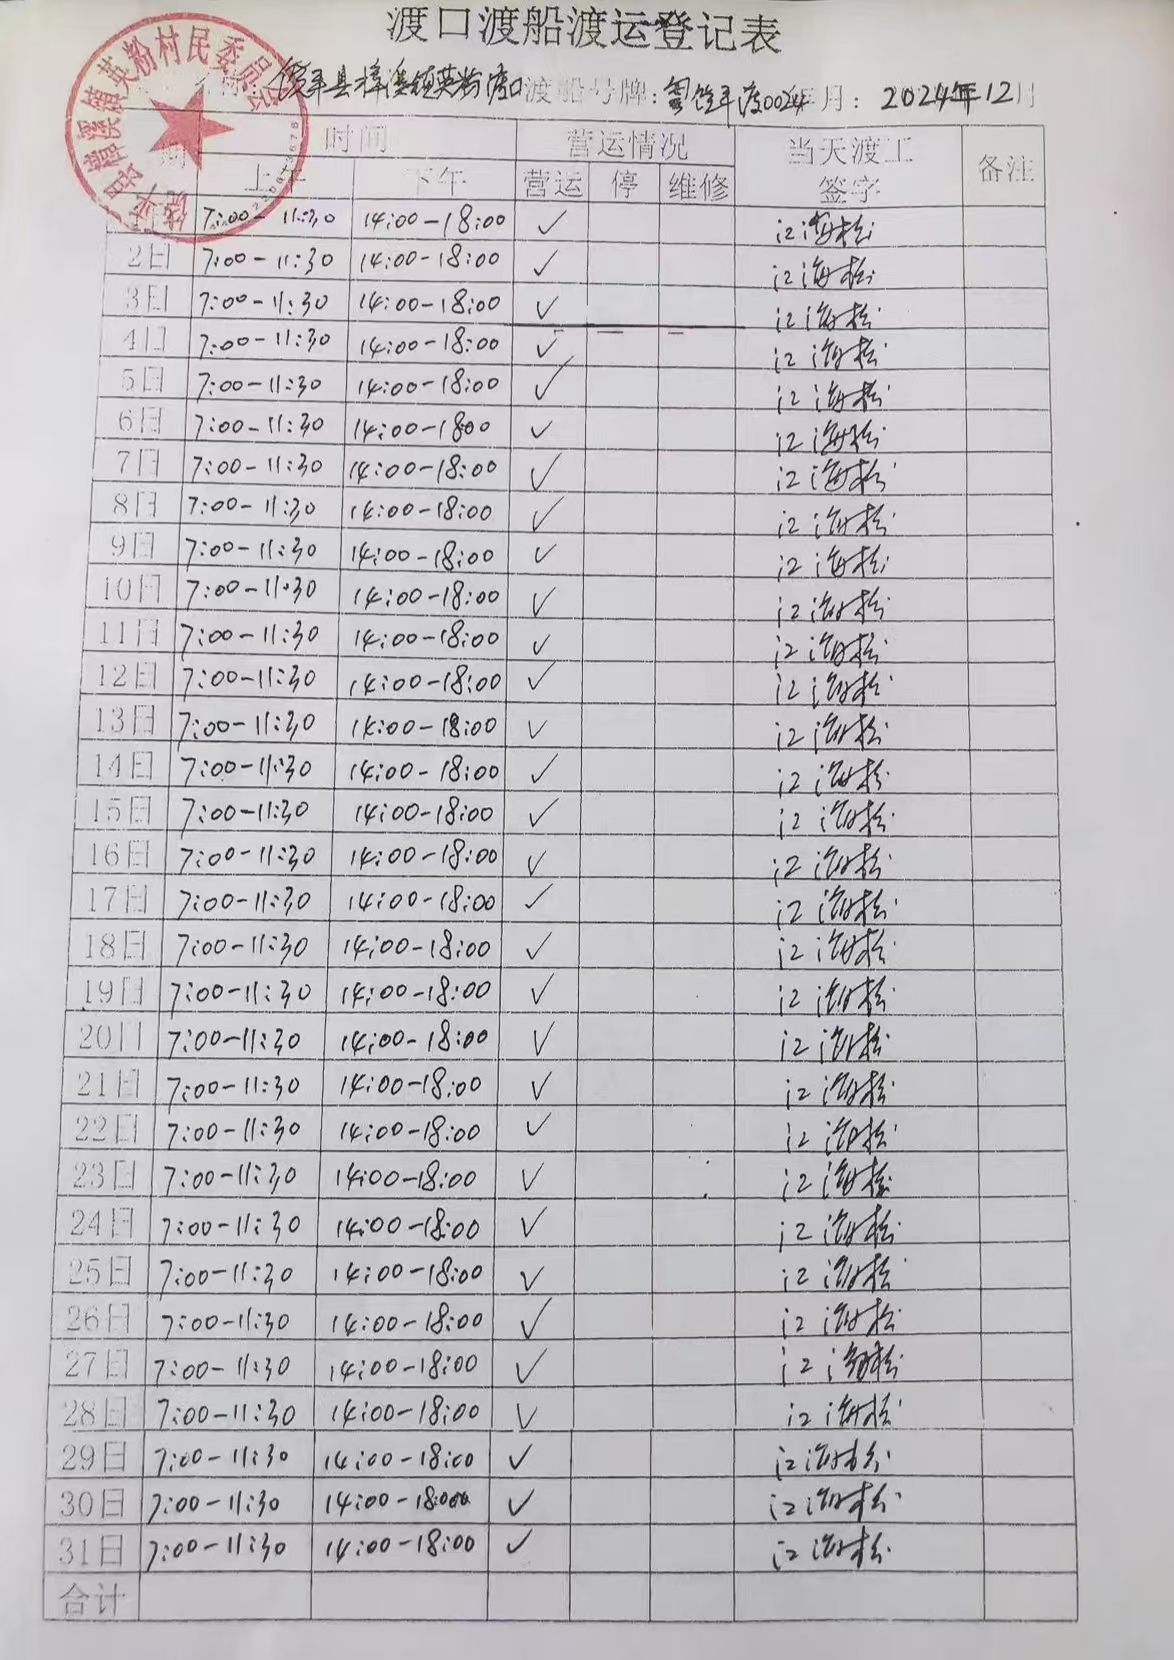 渡口渡船渡运登记表
饶平县樟溪镇英粉渡口 渡船号牌: 粤饶平渡0024 年月: 2024年12月
时间 营运情况 当天渡工签字 备注
上午 下午 营运 停 维修
1日 7:00-11:30 14:00-18:00 ✓ 江海松
2日 7:00-11:30 14:00-18:00 ✓ 江海松
3日 7:00-11:30 14:00-18:00 ✓ 江海松
4日 7:00-11:30 14:00-18:00 ✓ 江海松
5日 7:00-11:30 14:00-18:00 ✓ 江海松
6日 7:00-11:30 14:00-1800 ✓ 江海松
7日 7:00-11:30 14:00-18:00 ✓ 江海松
8日 7:00-11:30 14:00-18:00 ✓ 江海松
9日 7:00-11:30 14:00-18:00 ✓ 江海松
10日 7:00-11:30 14:00-18:00 ✓ 江海松
11日 7:00-11:30 14:00-18:00 ✓ 江海松
12日 7:00-11:30 14:00-18:00 ✓ 江海松
13日 7:00-11:30 14:00-18:00 ✓ 江海松
14日 7:00-11:30 14:00-18:00 ✓ 江海松
15日 7:00-11:30 14:00-18:00 ✓ 江海松
16日 7:00-11:30 14:00-18:00 ✓ 江海松
17日 7:00-11:30 14:00-18:00 ✓ 江海松
18日 7:00-11:30 14:00-18:00 ✓ 江海松
19日 7:00-11:30 14:00-18:00 ✓ 江海松
20日 7:00-11:30 14:00-18:00 ✓ 江海松
21日 7:00-11:30 14:00-18:00 ✓ 江海松
22日 7:00-11:30 14:00-18:00 ✓ 江海松
23日 7:00-11:30 14:00-18:00 ✓ 江海松
24日 7:00-11:30 14:00-18:00 ✓ 江海松
25日 7:00-11:30 14:00-18:00 ✓ 江海松
26日 7:00-11:30 14:00-18:00 ✓ 江海松
27日 7:00-11:30 14:00-18:00 ✓ 江海松
28日 7:00-11:30 14:00-18:00 ✓ 江海松
29日 7:00-11:30 14:00-18:00 ✓ 江海松
30日 7:00-11:30 14:00-18:00 ✓ 江海松
31日 7:00-11:30 14:00-18:00 ✓ 江海松
合计